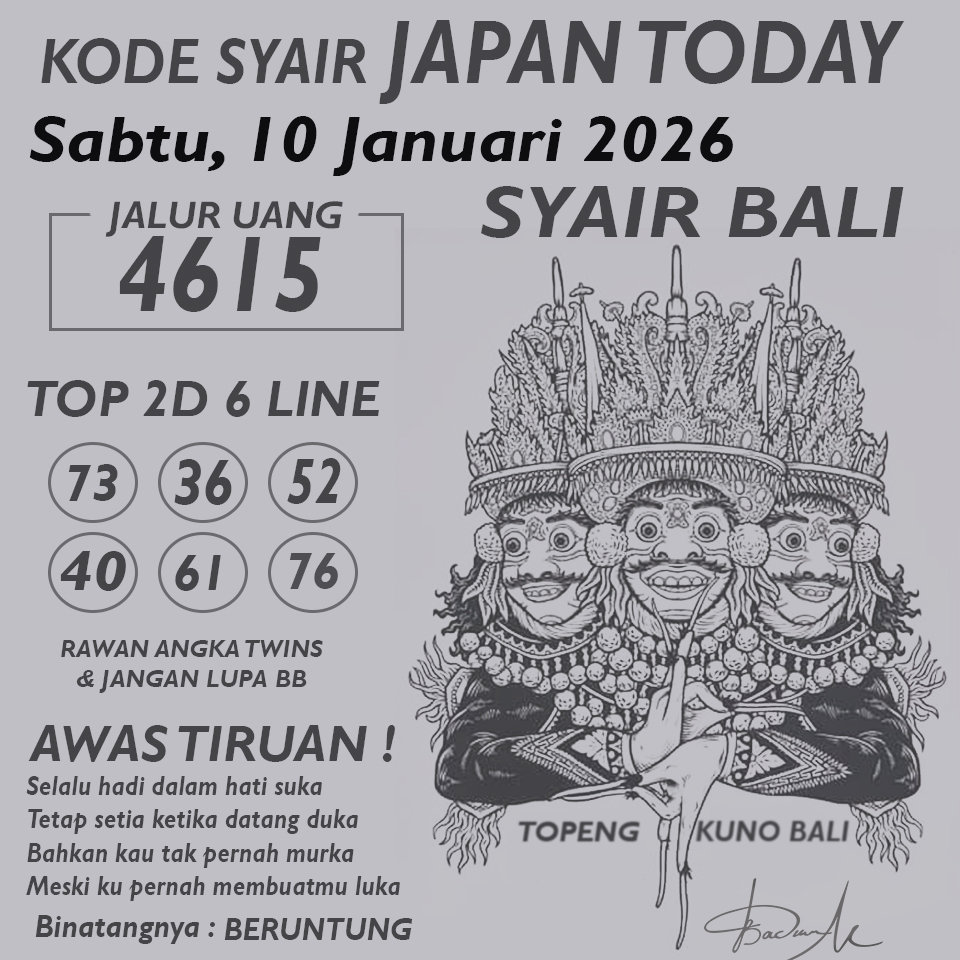 KODE SYAIR JAPAN TODAY
Sabtu, 10 Januari 2026
SYAIR BALI
JALUR UANG
4615
TOP 2D 6 LINE
73 36 52
40 61 76
RAWAN ANGKA TWINS
& JANGAN LUPA BB
AWAS TIRUAN !
Selalu hadi dalam hati suka
Tetap setia ketika datang duka
Bahkan kau tak pernah murka
Meski ku pernah membuatmu luka
Binatangnya : BERUNTUNG
TOPENG KUNO BALI